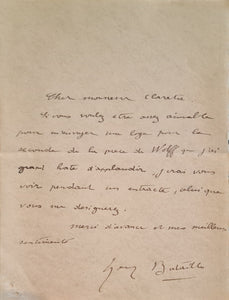 Cher monsieur Claretie
Si vous voulez être assez aimable
pour m'envoyer une loge pour la
seconde de la pièce de Wolff que j'ai
grand hâte d'applaudir, j'irai vous
voir pendant un entracte, celui que
vous me désignerez.
Merci d'avance et mes meilleurs
sentiments
Henry Bataille